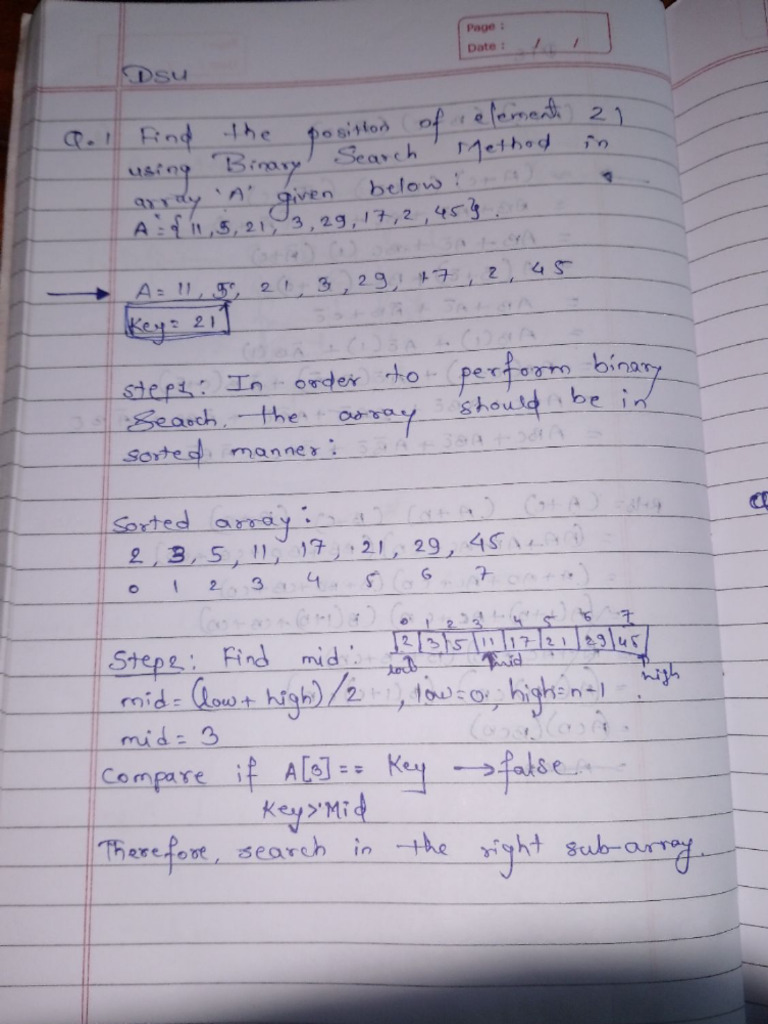 Page :
Date : / /
DSU
Q.1 Find the position of element 21
using Binary Search Method in
array 'A' given below:
A = {11, 5, 21, 3, 29, 17, 2, 45}.
→ A = 11, 5, 21, 3, 29, 17, 2, 45
Key = 21
step1: In order to perform binary
search, the array should be in
sorted manner:
Sorted array:
2, 3, 5, 11, 17, 21, 29, 45
0 1 2 3 4 5 6 7
0 1 2 3 4 5 6 7
Step2: Find mid: 2 3 5 11 17 21 29 45
low mid high
mid = (low + high)/2, low=0, high=n-1.
mid = 3
Compare if A[3] == Key → false.
Key > Mid
Therefore, search in the right sub-array.